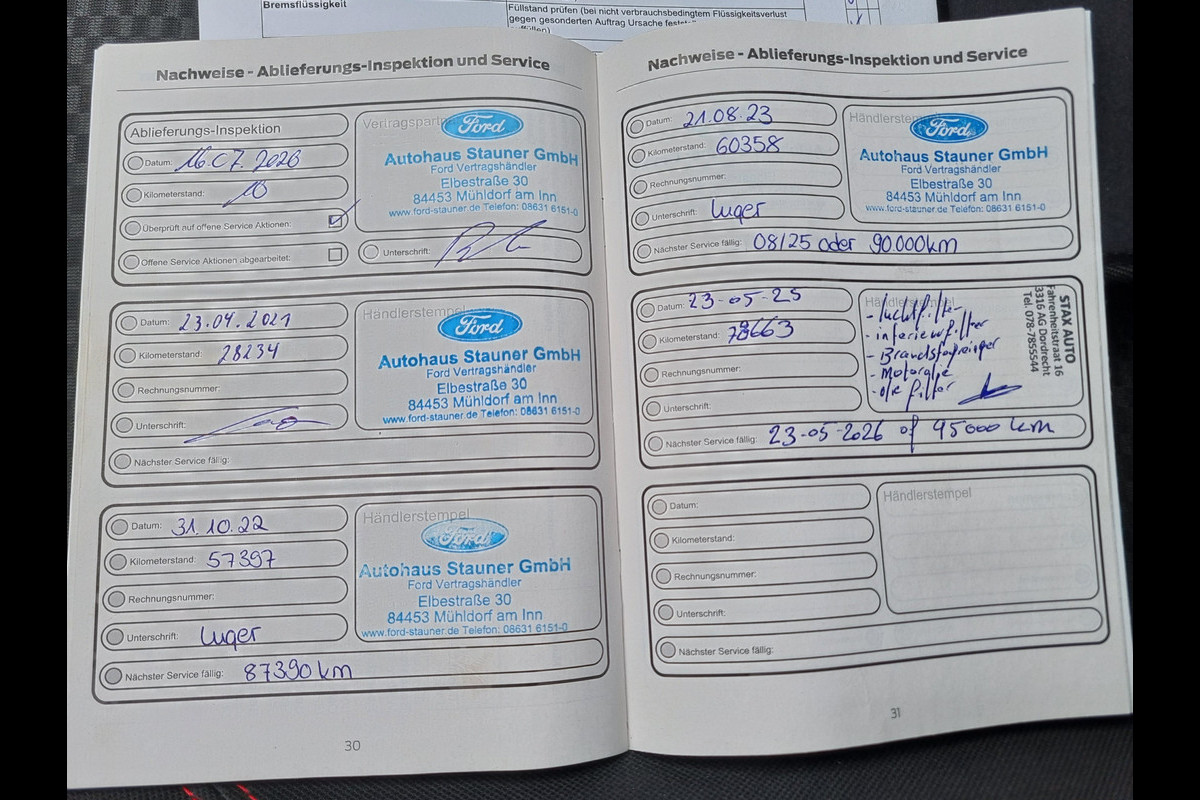 Bremsflüssigkeit
Füllstand prüfen (bei nicht verbrauchsbedingtem Flüssigkeitsverlust
gegen gesonderten Auftrag Ursache
Nachweise - Ablieferungs-Inspektion und Service
Ablieferungs-Inspektion
Datum: 16.07.2020
Kilometerstand: 10
Überprüft auf offene Service Aktionen:
Offene Service Aktionen abgearbeitet:
Ford
Autohaus Stauner GmbH
Ford Vertragshändler
Elbestraße 30
84453 Mühldorf am Inn
www.ford-stauner.de Telefon: 08631 6151-0
Unterschrift:
Datum: 23.04.2021
Kilometerstand: 28234
Rechnungsnummer:
Unterschrift:
Nächster Service fällig:
Händlerstempel
Ford
Autohaus Stauner GmbH
Ford Vertragshändler
Elbestraße 30
84453 Mühldorf am Inn
www.ford-stauner.de Telefon: 08631 6151-0
Datum: 31.10.22
Kilometerstand: 57397
Rechnungsnummer:
Unterschrift: Luger
Nächster Service fällig: 87390 km
Händlerstempel
Ford
Autohaus Stauner GmbH
Ford Vertragshändler
Elbestraße 30
84453 Mühldorf am Inn
www.ford-stauner.de Telefon: 08631 6151-0
30
Nachweise - Ablieferungs-Inspektion und Service
Datum: 21.08.23
Kilometerstand: 60358
Rechnungsnummer:
Unterschrift: Luger
Nächster Service fällig: 08/25 oder 90.000km
Ford
Autohaus Stauner GmbH
Ford Vertragshändler
Elbestraße 30
84453 Mühldorf am Inn
www.ford-stauner.de Telefon: 08631 6151-0
Datum: 23-05-25
Kilometerstand: 78663
Rechnungsnummer:
Unterschrift:
Nächster Service fällig: 23-05-2026 of 95000 km
Händlerstempel
- luchtfilter
- interieurfilter
- Motorolie
- olie filter
STAX AUTO
Fahrenheitstraat 16
3316 AG Dordrecht
Tel. 078-7855544
Datum:
Kilometerstand:
Rechnungsnummer:
Unterschrift:
Nächster Service fällig:
Händlerstempel
31